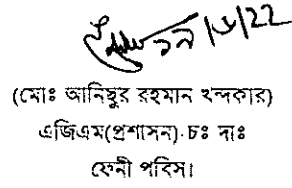 (মোঃ আনিছুর রহমান খন্দকার)
এজিএম(প্রশাসন) চঃ দাঃ
ফেনী পবিস।